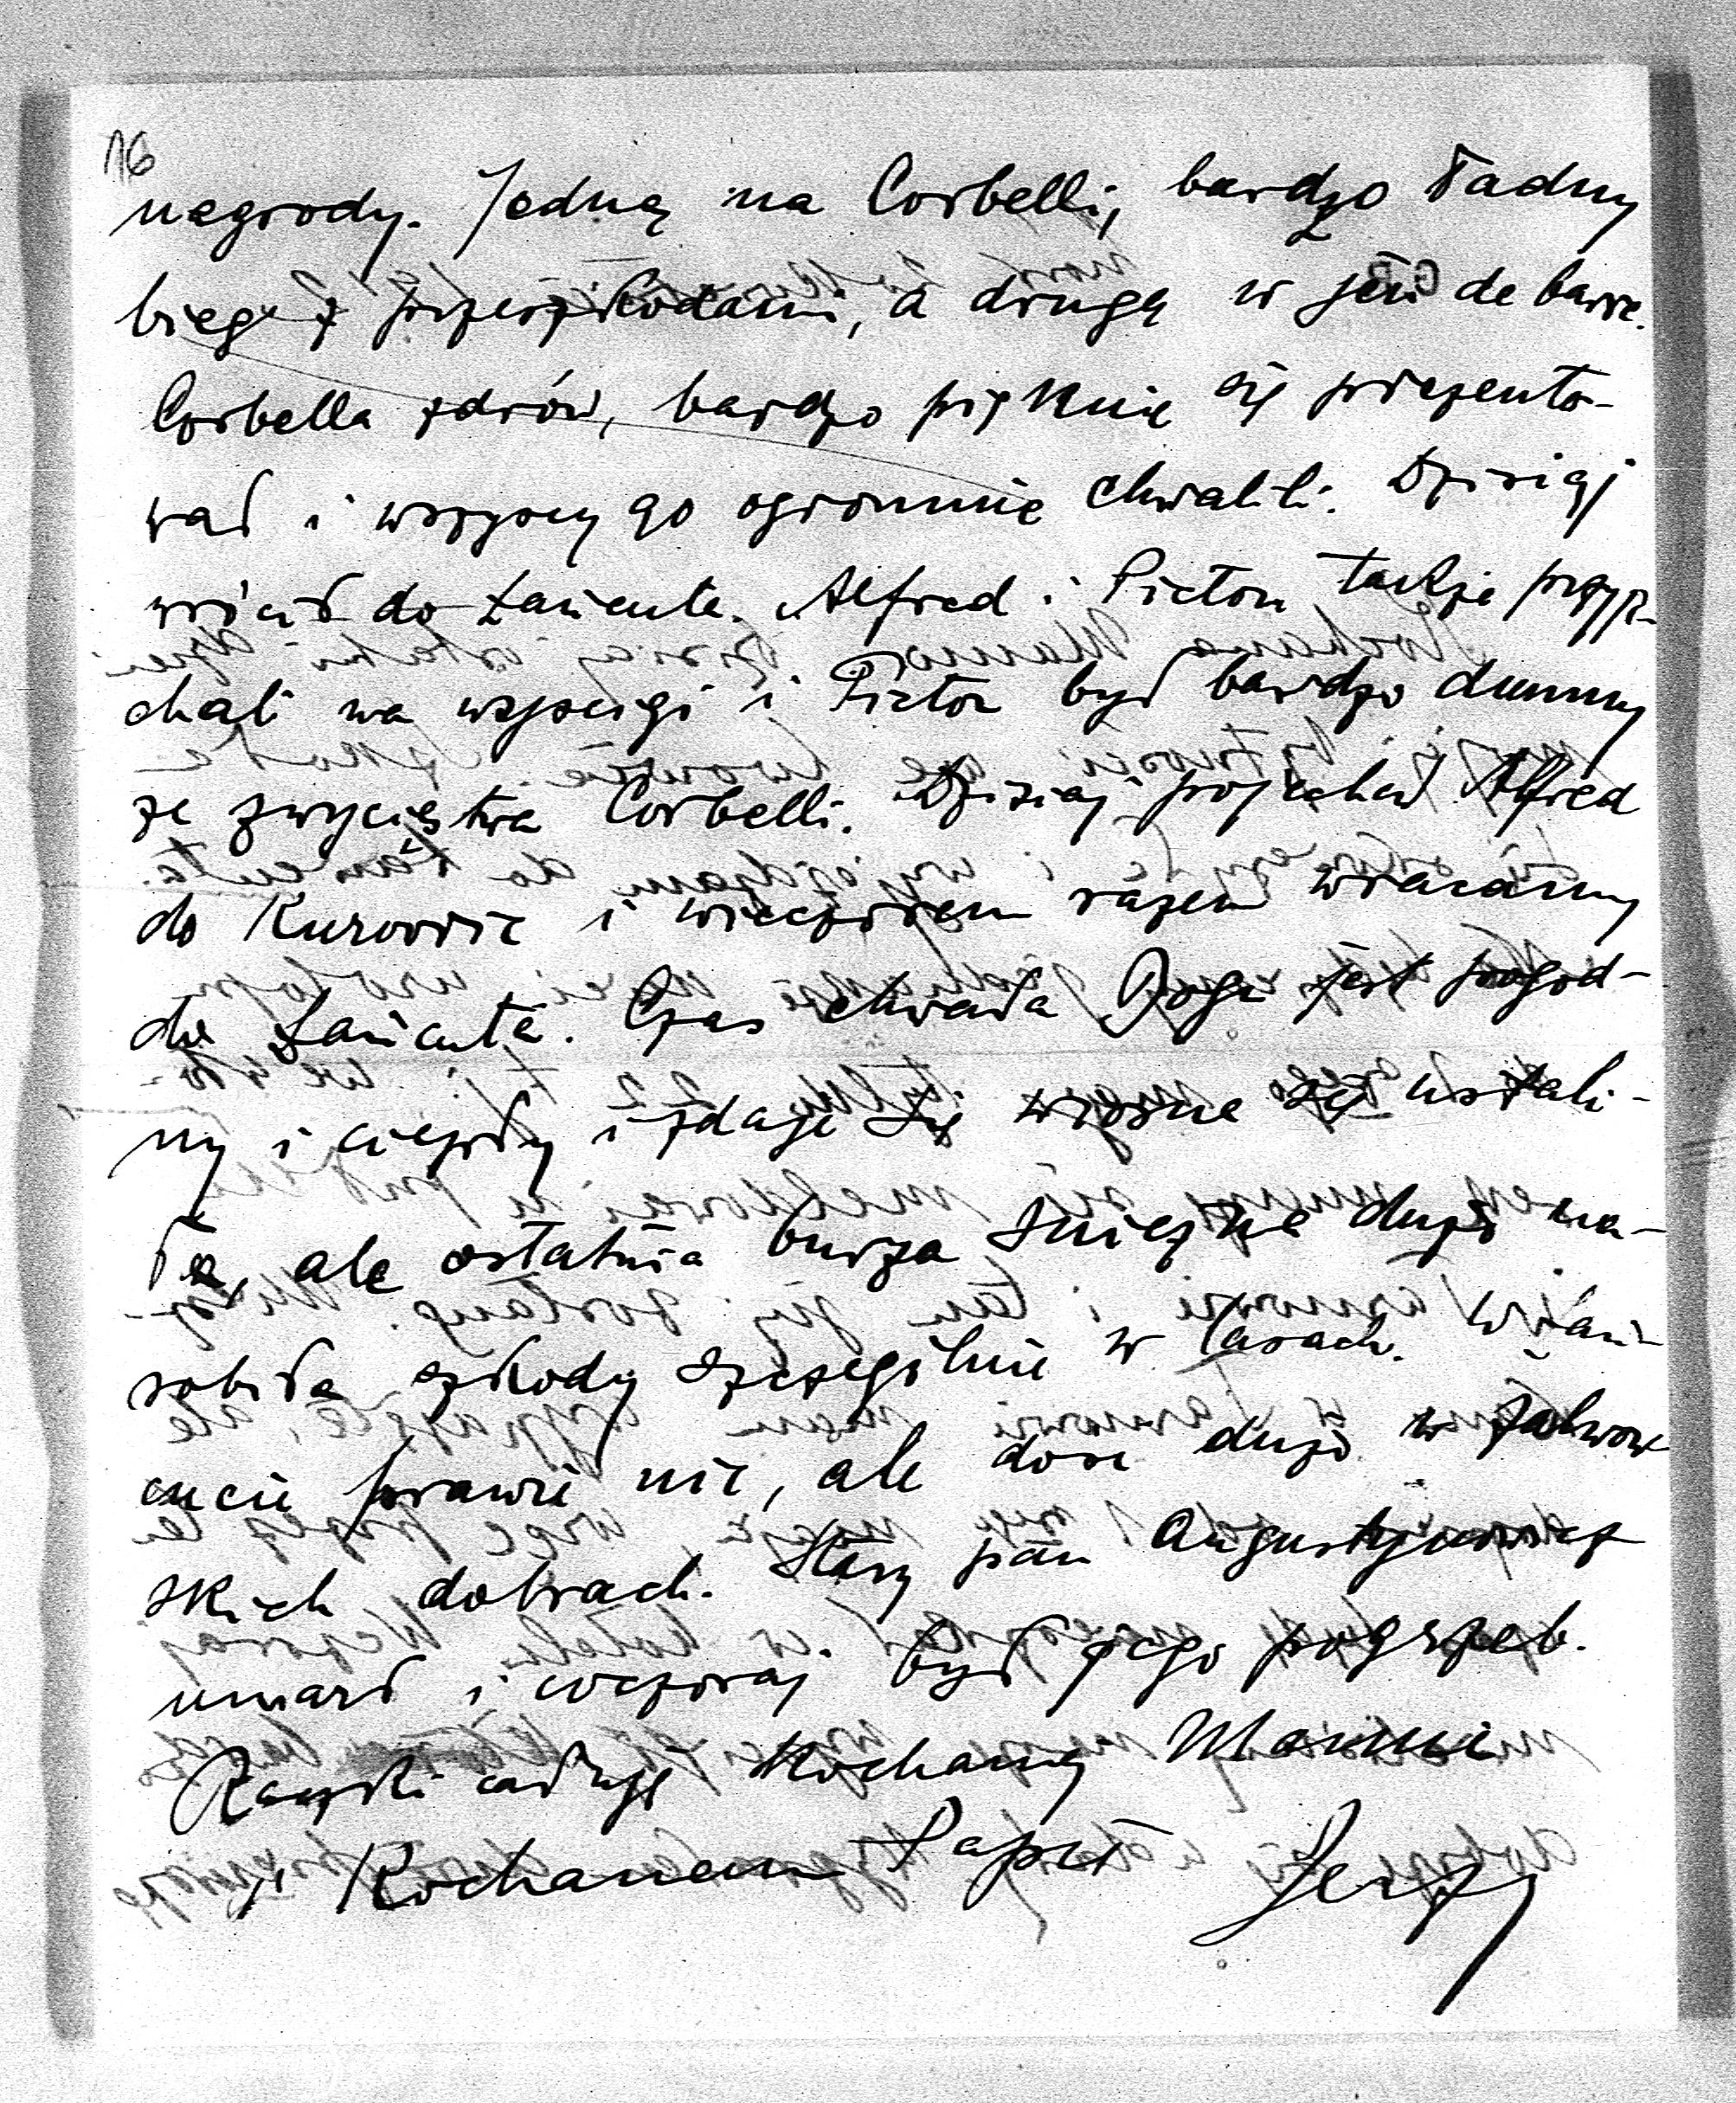 16
nagrody. Jedną na Corbelli, bardzo ładny
bieg z przeszkodami, a drugą w jeu de barre.
Corbella zdrów, bardzo pięknie się prezento-
wał i wszyscy go ogromnie chwalili. Dzisiaj
wrócił do Łańcuta. Alfred i Pictor także przyje-
chali na wyścigi i Pictor był bardzo dumny
ze zwycięstwa Corbelli. Dzisiaj pojechał Alfred
do Kurowic i wieczorem razem wracamy
do Łańcuta. Czas chwała Bogu jest pogod-
ny i ciepły i zdaje się wiosna się ustali-
ła, ale ostatnia burza śnieżna dużo na-
robiła szkody szczególnie w lasach. W Łań-
cucie prawie nic, ale dość dużo w
skich dobrach. Stary pan Augustynowicz
umarł i wczoraj był jego pogrzeb.
Rączki całuję Kochanej Mamie
i Kochanemu Papie Jerzy